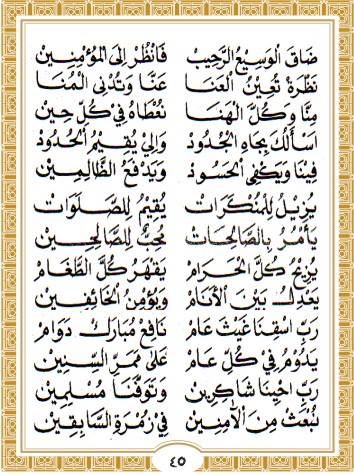 ضَاقَ الْوَسِيعُ الرَّحِيب فَانْظُرْ إِلَى الْمُؤْمِنِيْن
نَظْرَةْ تُعِيْنُ الْعَنَا عَنَّا وَتُدْنِي الْمُنَا
مِنَّا وَكُلَّ الْهَنَا نُعْطَاهُ فِي كُلِّ حِيْن
اسْأَلُكَ بِجَاهِ الْجُدُوْد وَالِيْ يُقِيْمُ الْحُدُوْد
فِيْنَا وَيَكْفِى الْحَسُوْد وَيَدْفَعُ الظَّالِمِيْن
يُزِيْلُ لِلْمُنْكَرَات يُقِيْمُ لِلصَّلَوَات
يَأْمُرُ بِالصَّالِحَات مُحِبٌّ لِلصَّالِحِيْن
يُزِيْحُ كُلَّ الْحَرَام يَقْهَرُ كُلَّ الطَّغَام
يَعْدِلُ بَيْنَ الْأَنَام وَيُؤْمِنُ الْخَائِفِيْن
رَبِّ اسْقِنَا غَيْثَ عَام نَافِعْ مُبَارَكْ دَوَام
يَدُوْمُ فِي كُلِّ عَام عَلَى مَمَرِّ السِّنِيْن
رَبِّ احْيِنَا شَاكِرِيْن وَتَوَفَّنَا مُسْلِمِيْن
نُبْعَثْ مِنَ الْآمِنِيْن فِيْ زُمْرَةِ السَّابِقِيْن
٤٥